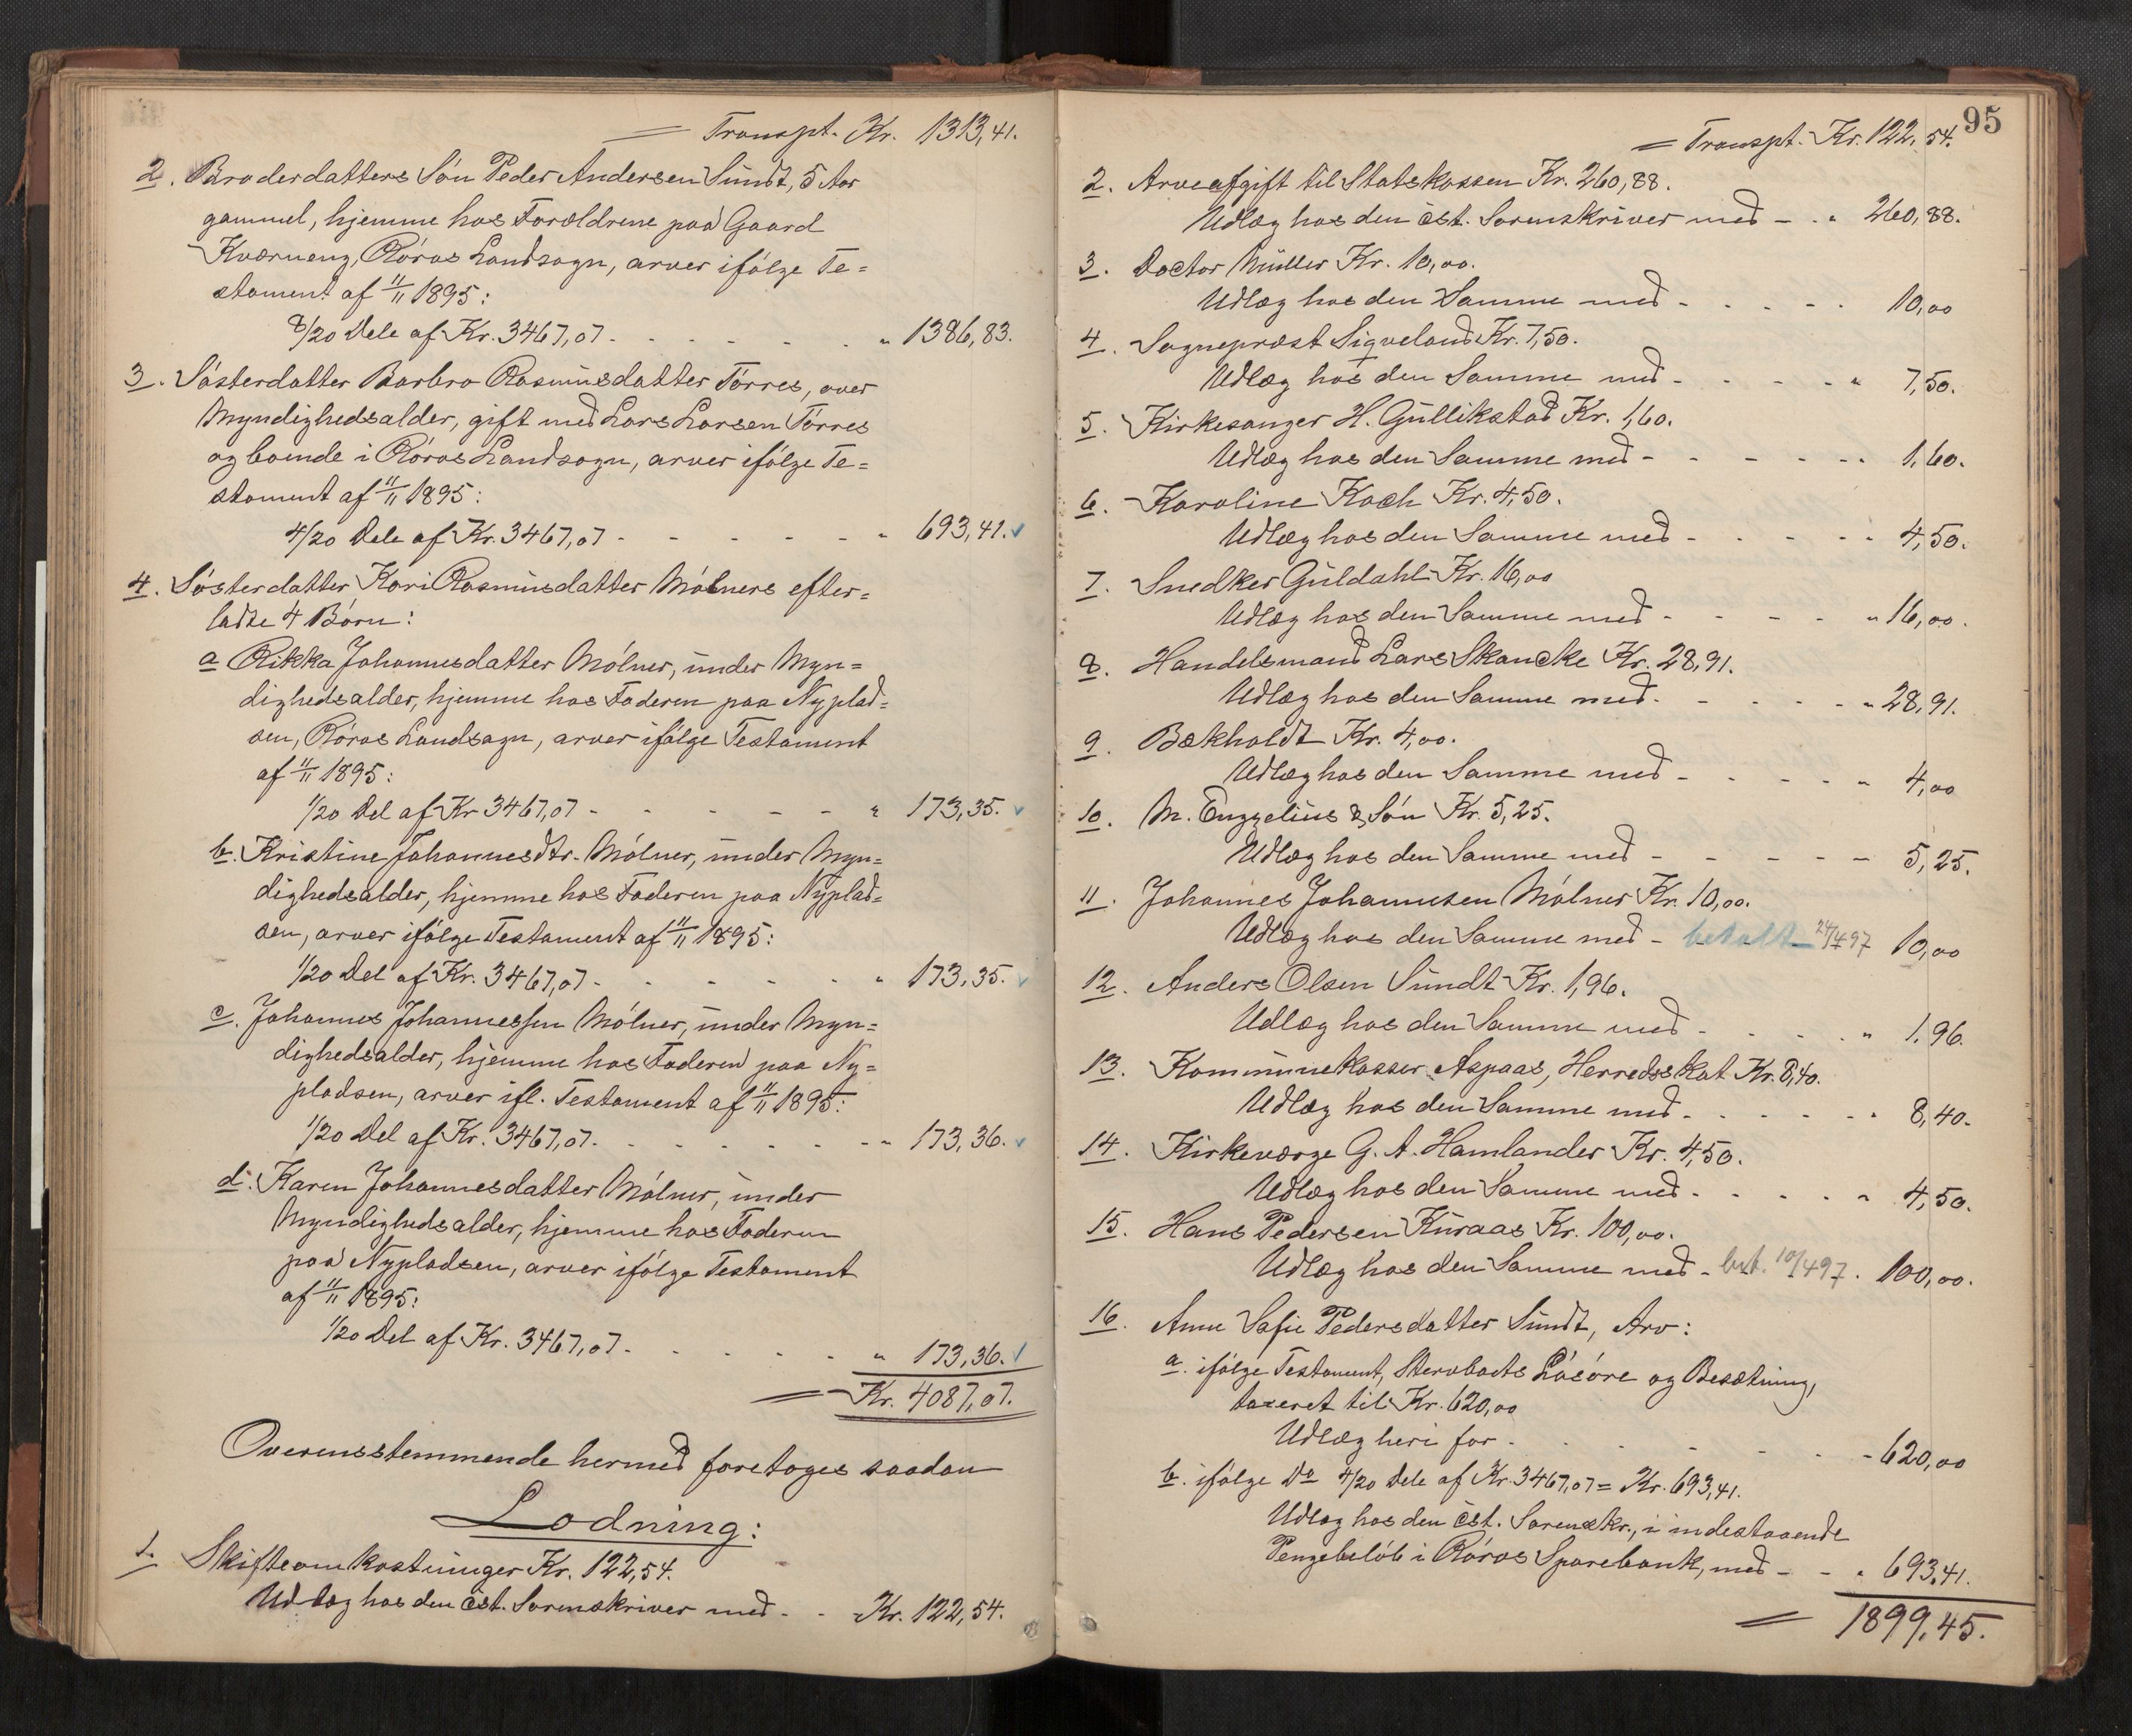 Transpt. Kr. 1313,41.
2. Broderdatters Søn Peder Andersen Sundt, 5 Aar
gammel, hjemme hos Forældrene paa Gaard
Kværneng, Røros Landsogn, arver ifølge Te=
stament af 11/11 1895:
8/20 Dele af Kr. 3467,07 - - - - - " 1386,83.
3. Søsterdatter Barbro Rasmusdatter Tørres, over
Myndighedsalder, gift med Lars Larsen Tørres
og boende i Røros Landsogn, arver ifølge Te=
stament af 11/11 1895:
4/20 Dele af Kr. 3467,07 - - - - - " 693,41.
4. Søsterdatter Kari Rasmusdatter Mølners efter=
ladte 4 Børn:
a Rikka Johannesdatter Mølner, under Myn=
dighedsalder, hjemme hos Faderen paa Nyplad=
sen, Røros Landsogn, arver ifølge Testament
af 11/11 1895:
1/20 Del af Kr 3467,07 - - - - - " 173,35.
b. Kristine Johannesdtr. Mølner, under Myn=
dighedsalder, hjemme hos Faderen paa Nyplad=
sen, arver ifølge Testament af 11/11 1895:
1/20 Del af Kr. 3467,07 - - - - - " 173,35.
c. Johannes Johannessen Mølner, under Myn=
dighedsalder, hjemme hos Faderen paa Ny=
pladsen, arver ifl. Testament af 11/11 1895:
1/20 Del af Kr. 3467,07. - - - - - " 173,36.
d. Karen Johannesdatter Mølner, under
Myndighedsalder, hjemme hos Faderen
paa Nypladsen, arver ifølge Testament
af 11/11 1895:
1/20 Del af Kr. 3467,07. - - - - - " 173,36.
= Kr. 4087,07.
Overensstemmende hermed foretoges saadan
Lodning:
1. Skifteomkostninger Kr. 122,54.
Udlæg hos den cst. Sorenskriver med - - Kr. 122,54.
95
= Transpt. Kr. 122,54.
2. Arveafgift til Statskassen Kr. 260,88.
Udlæg hos den cst. Sorenskriver med - " 260,88.
3. Doctor Müller Kr. 10,00.
Udlæg hos den Samme med - - - - - 10,00
4. Sogneprest Sigveland Kr. 7,50.
Udlæg hos den Samme med - - - - " 7,50.
5. Kirkesanger H. Gullikstad Kr. 1,60.
Udlæg hos den Samme med - - - - - 1,60.
6. Karoline Koch Kr. 4,50.
Udlæg hos den Samme med - - - - - 4,50.
7. Snedker Guldahl Kr. 16,00
Udlæg hos den Samme med - - - - " 16,00.
8. Handelsmand Lars Skancke Kr. 28,91.
Udlæg hos den Samme med - - - - " 28,91.
9. Bækholdt Kr. 4,00.
Udlæg hos den Samme med - - - - - 4,00
10. M. Engzelius & Søn Kr. 5,25.
Udlæg hos den Samme med - - - - - 5,25.
11. Johannes Johannesen Mølner Kr. 10,00.
Udlæg hos den Samme med - betalt 24/4 97 10,00
12. Anders Olsen Sundt Kr. 1,96.
Udlæg hos den Samme med - - - - " 1,96.
13. Kommunekasser Aspaas, Herredsskat Kr. 8,40.
Udlæg hos den Samme med - - - - - 8,40.
14. Kirkeværge G. A. Hamlander Kr. 4,50.
Udlæg hos den Samme med - - - - " 4,50.
15. Hans Pedersen Kuraas Kr. 100,00.
Udlæg hos den Samme med - bet. 10/4 97. 100,00.
16. Anne Sofie Pedersdatter Sundt, Arv:
a. ifølge Testament, Stervboets Løsøre og Besætning,
taxeret til Kr. 620,00
Udlæg heri for - - - - - 620,00
b. ifølge Do 4/20 Dele af Kr. 3467,07 = Kr. 693,41.
Udlæg hos den cst. Sorenskr., i indestaaende
Pengebeløb i Røros Sparebank, med - - " 693,41.
= 1899,45.